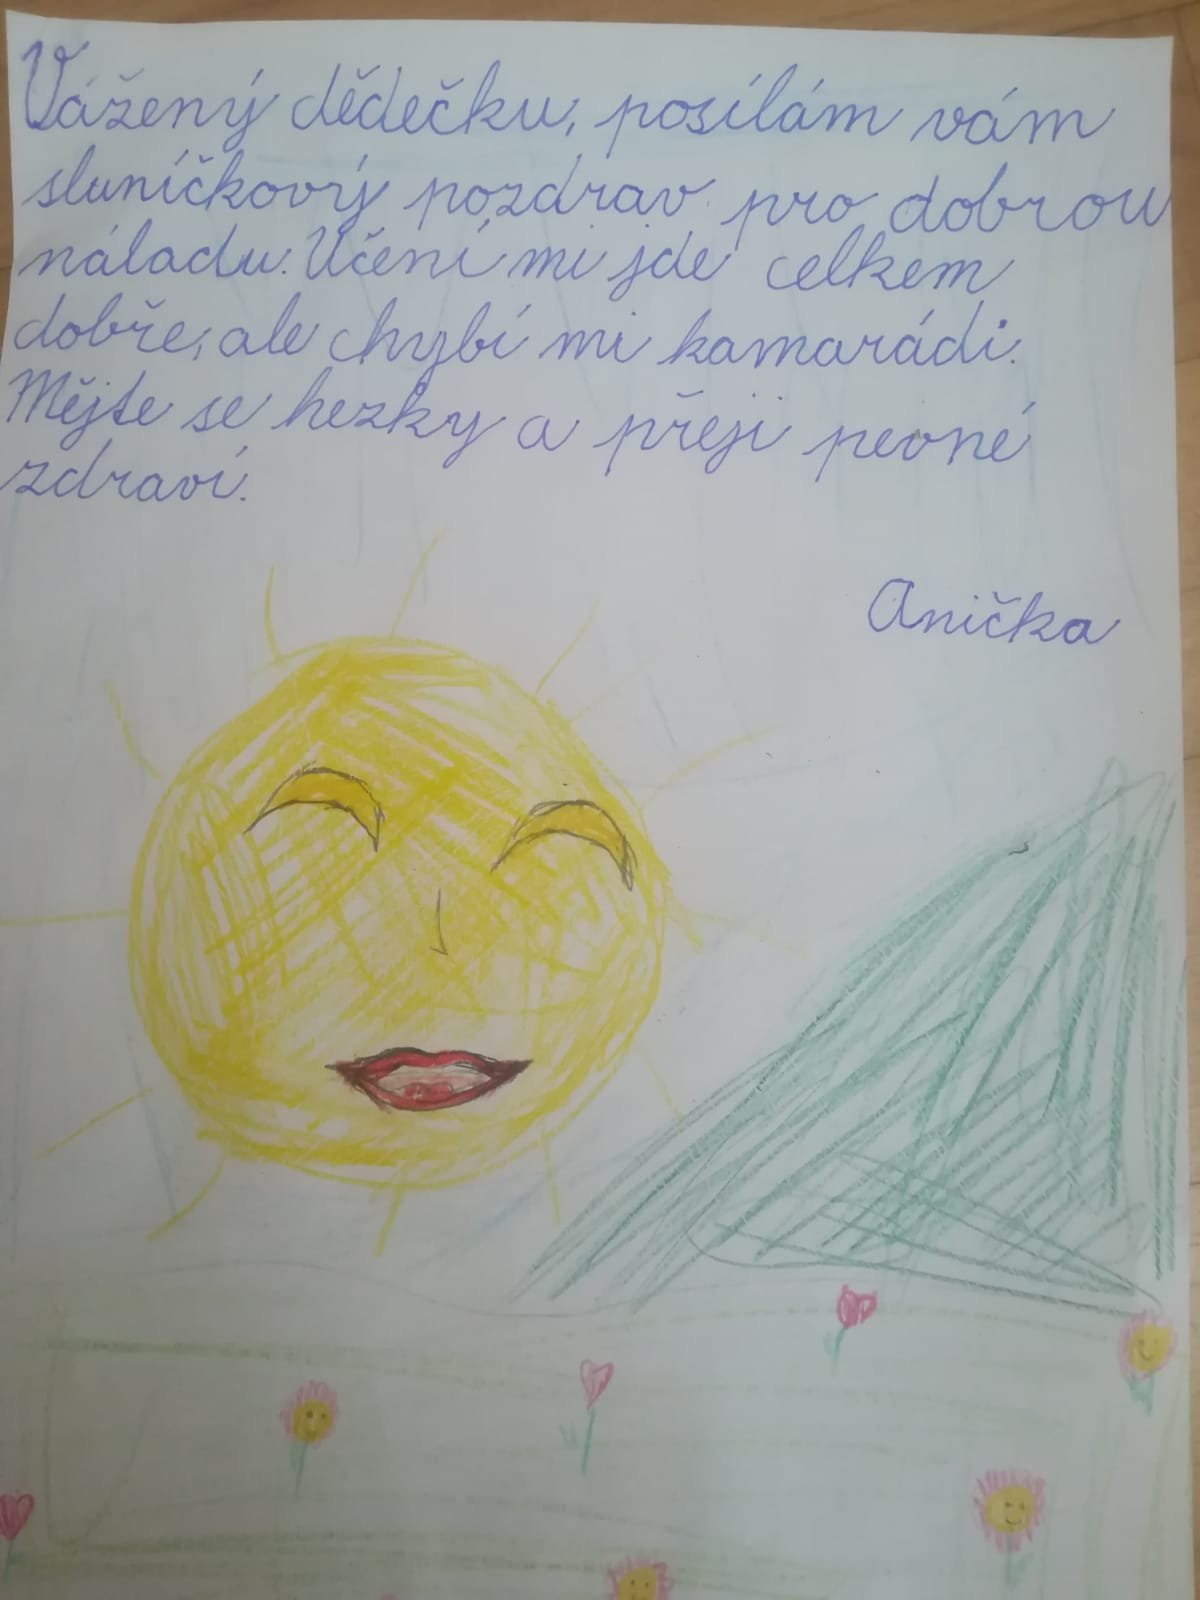 Vážený dědečku, posílám vám
sluníčkový pozdrav pro dobrou
náladu. Učení mi jde celkem
dobře, ale chybí mi kamarádi.
Mějte se hezky a přeji pevné
zdraví.
Anička